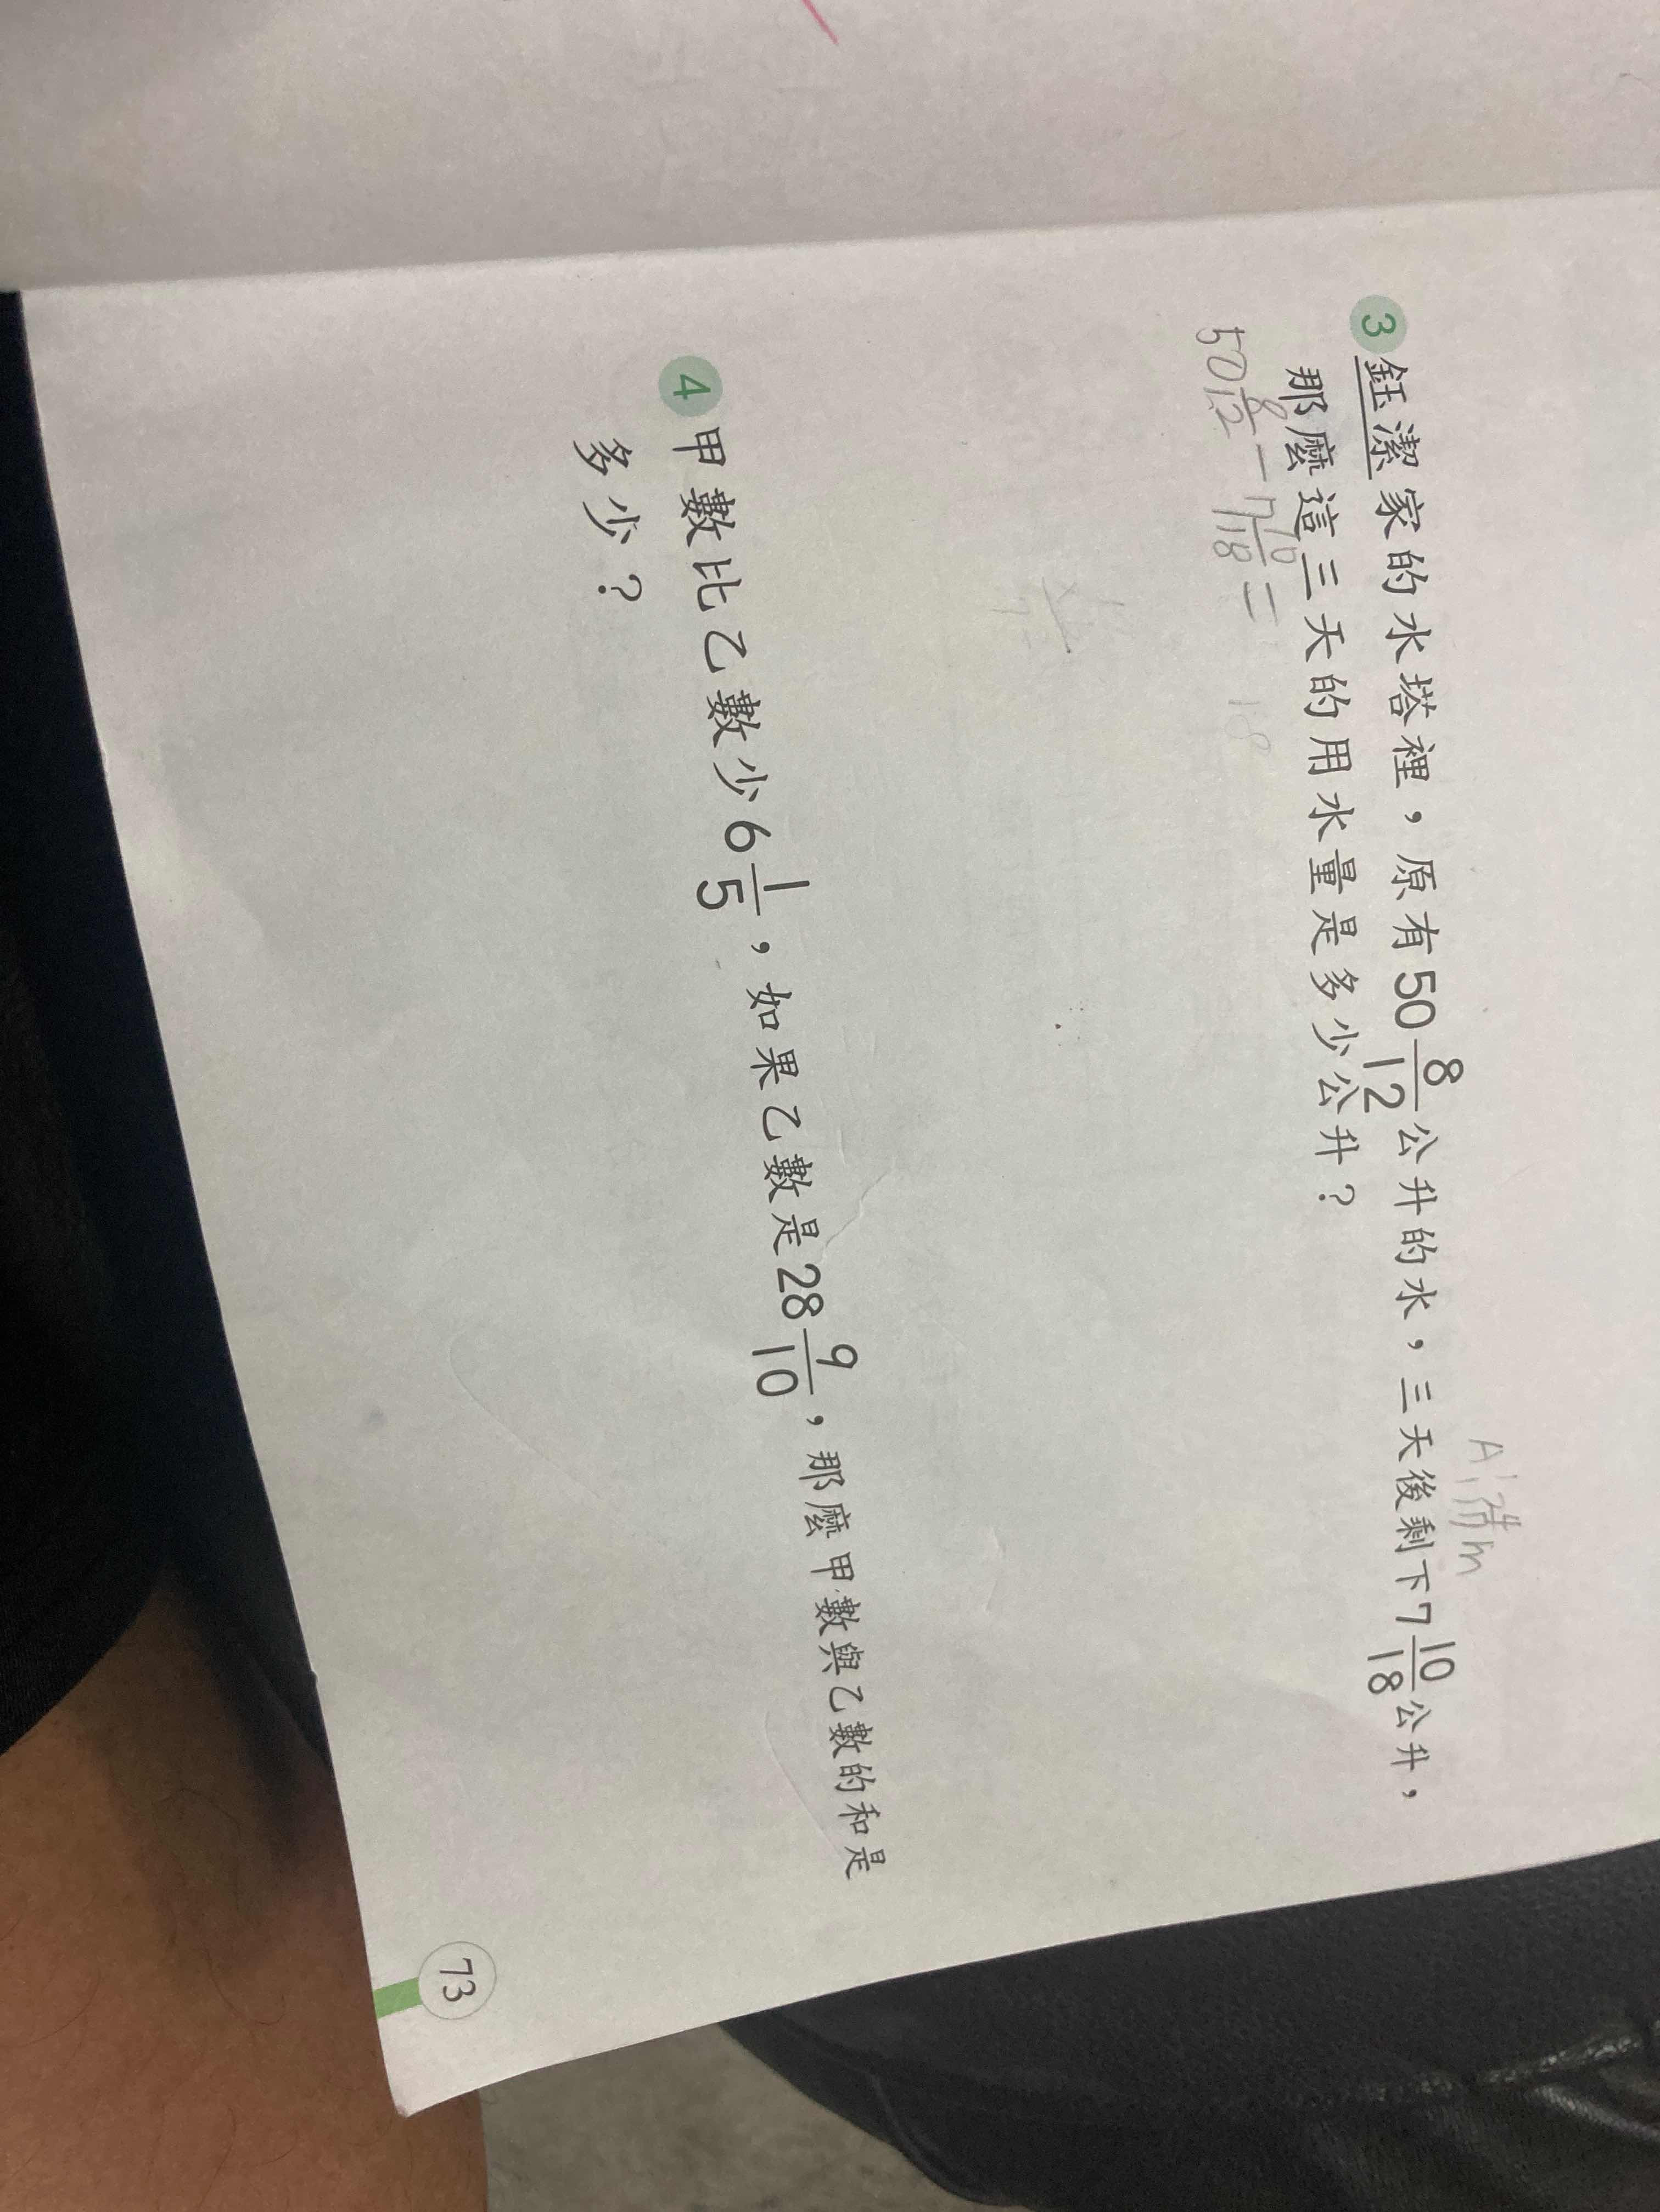 3 鈺潔家的水塔裡，原有50 8/12 公升的水，三天後剩下7 10/18 公升，
那麼這三天的用水量是多少公升？
50 8/12 - 7 10/18 =
18
4 甲數比乙數少6 1/5，如果乙數是28 9/10，那麼甲數與乙數的和是
多少？
73